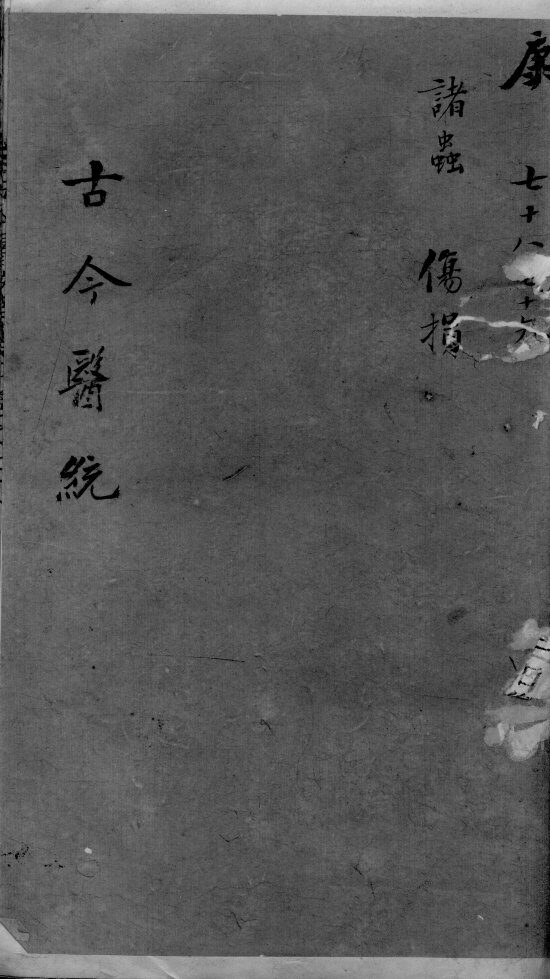 康
七十八 七十九
諸蟲 傷損
古今醫統